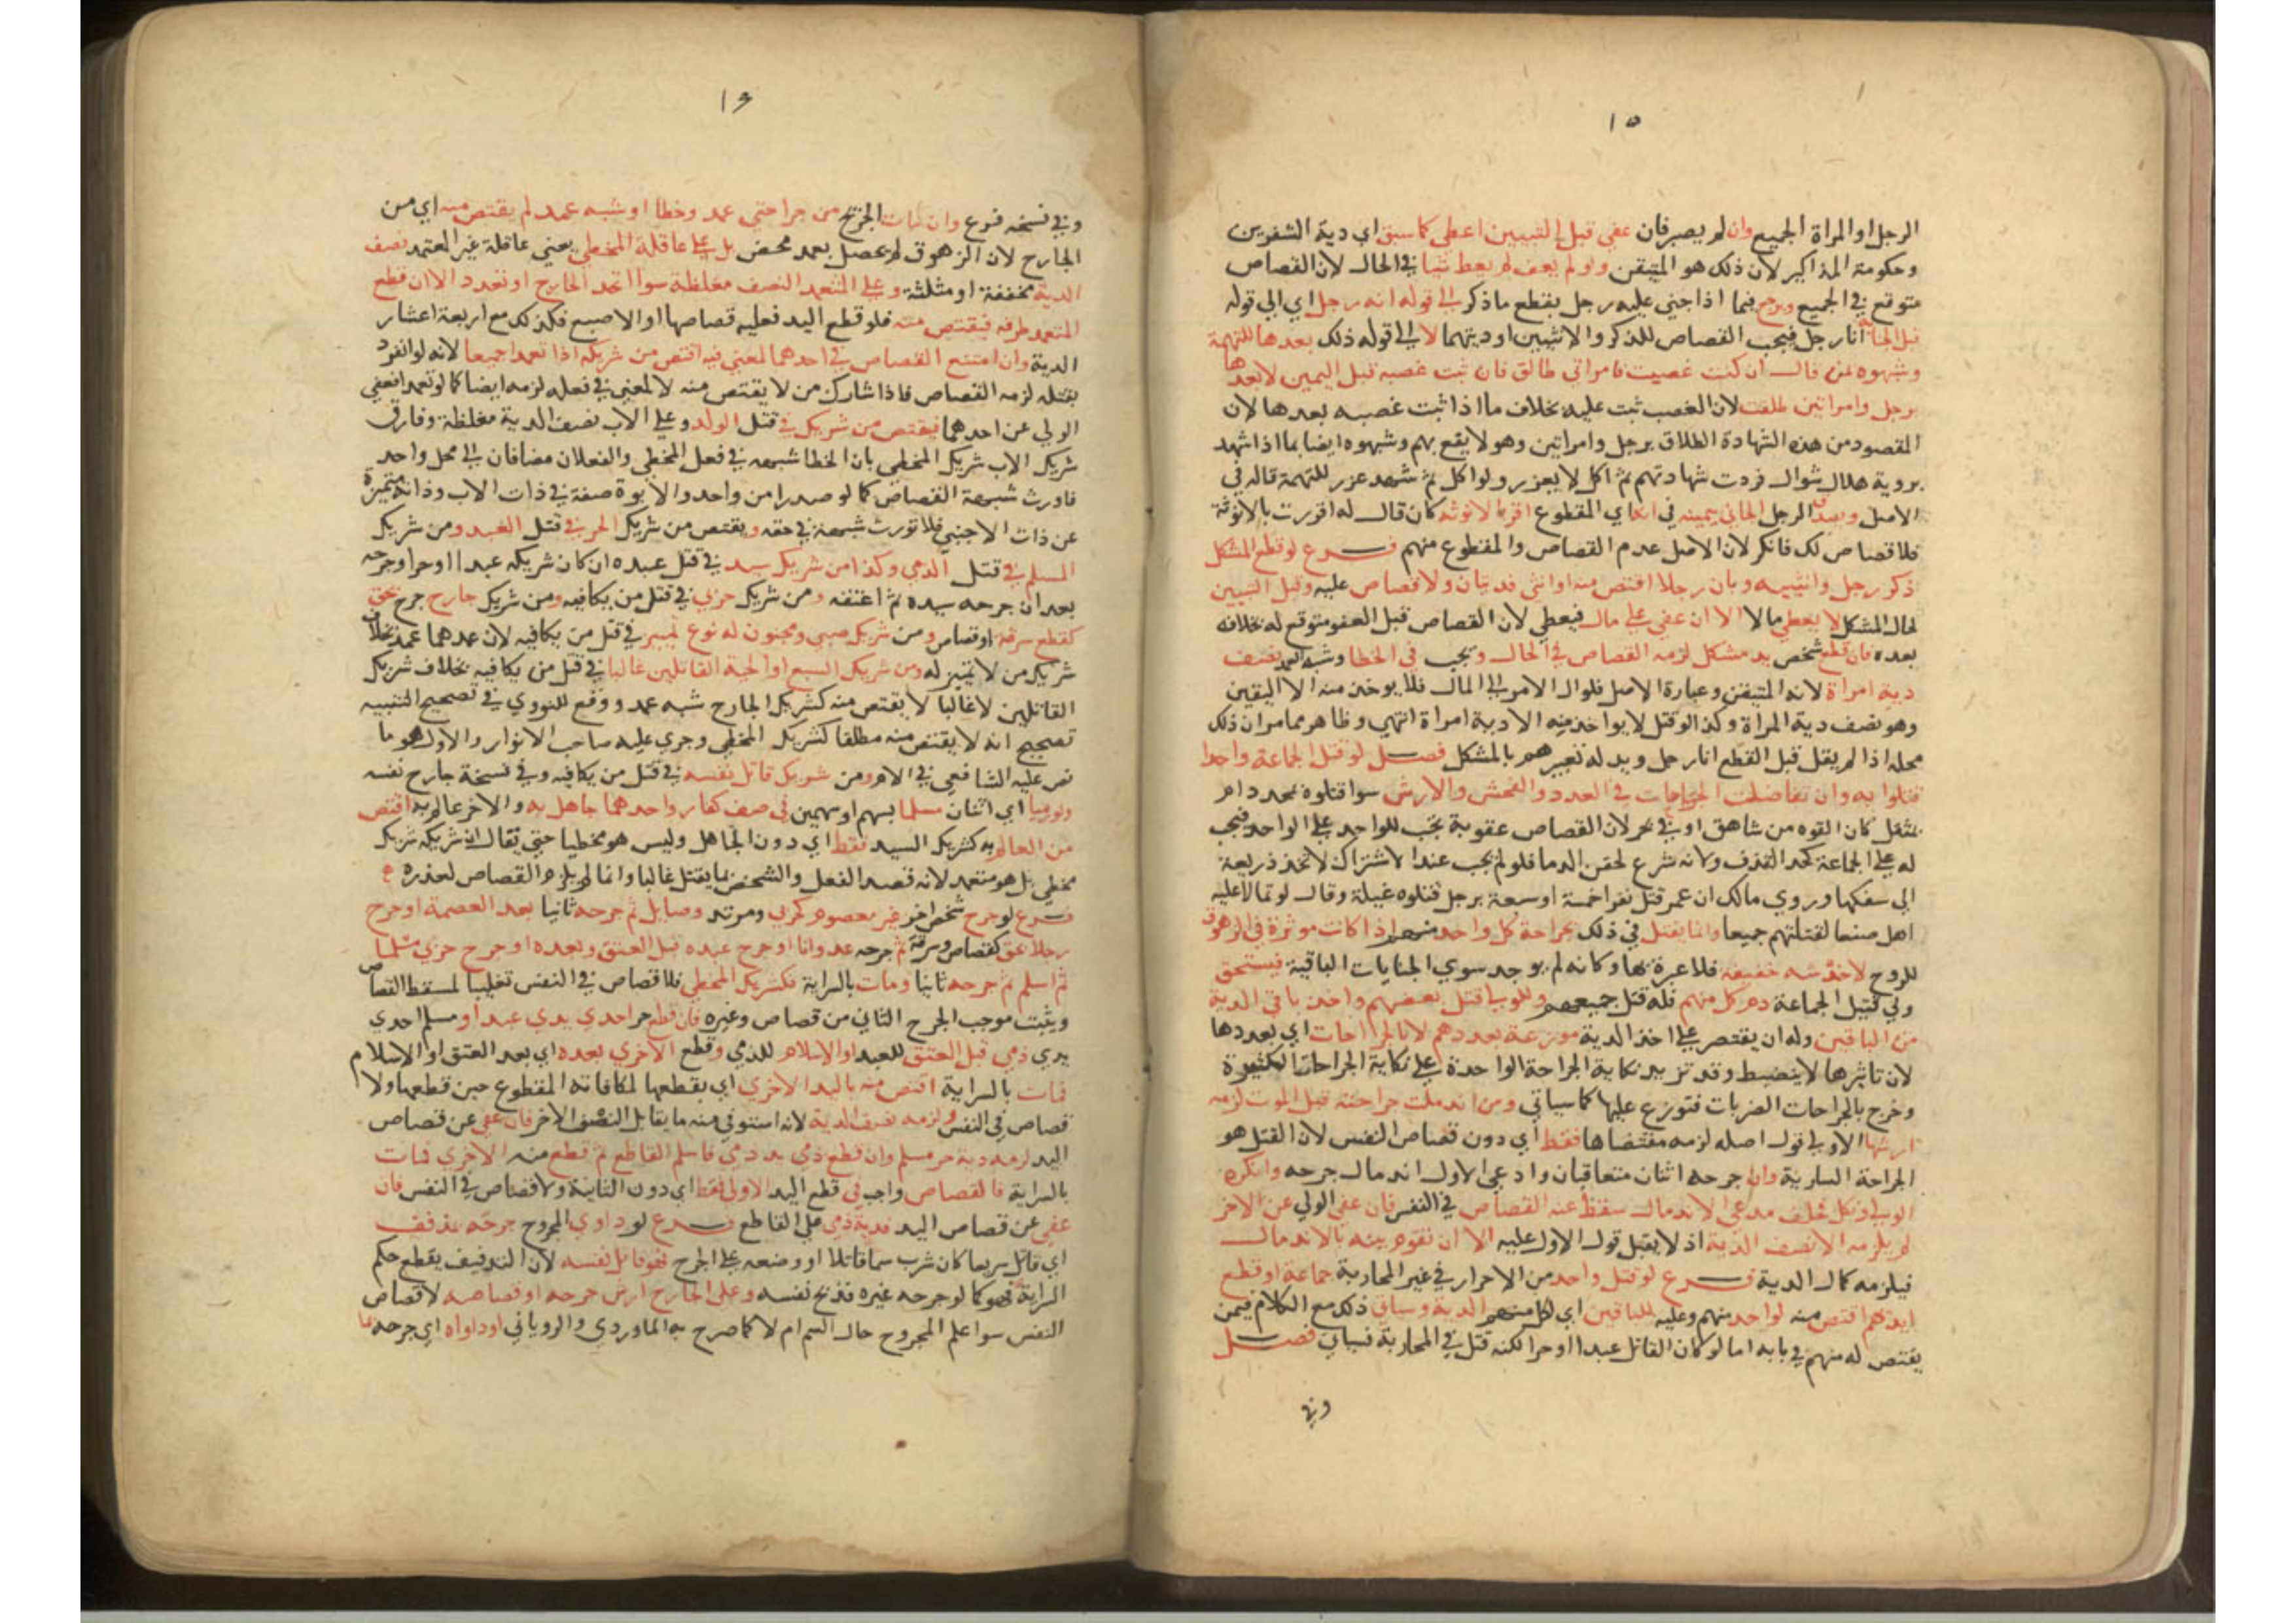 ١٥
الرجل او المراة الجميع وان لم يصبر فان عفي قبل التبيين اعطي كما سبق اي دية الشفرين
وحكومة المذاكير لان ذلك هو المتيقن ولو لم يعف لم يعط شيا في الحال لان القصاص
متوقع في الجميع ويرجع فيما اذا جني عليه رجل بقطع ما ذكر الي قوله انه رجل اي الي قوله
قبل الجناية انا رجل فيجب القصاص للذكر والانثيين او ديتهما لا الي قوله ذلك بعدها للتهمة
وشبهوه بمن قال ان كنت غصبت فامراتي طالق فان ثبت غصبه قبل اليمين لا بعدها
برجل وامراتين طلقت لان الغصب ثبت عليه بخلاف ما اذا ثبت غصبه بعدها لان
المقصود من هذه الشهادة الطلاق برجل وامراتين وهو لا يقع بهم وشبهوه ايضا بما اذا شهد
بروية هلال شوال فردت شهادتهم ثم اكل لا يعزر ولو اكل ثم شهد عزر للتهمة قاله في
الاصل وصدق الرجل الجاني بيمينه في انه اي المقطوع اقر بالانوثة كان قال له اقررت بالانوثة
فلا قصاص لك فانكر لان الاصل عدم القصاص والمقطوع متهم فرع لو قطع المشكل
ذكر رجل وانثييه وبان رجلا اقتص منه او انثي فديتان ولا قصاص عليه وقبل التبيين
لحال المشكل لا يعطي مالا الا ان عفي علي مال فيعطي لان القصاص قبل العفو متوقع له بخلافه
بعده فان قطع شخص يد مشكل لزمه القصاص في الحال ويجب في الخطا وشبه العمد نصف
دية امراة لانه المتيقن وعبارة الاصل فلو ال الامر الي المال فلا يوخذ منه الا اليقين
وهو نصف دية المراة وكذا لو قتل لا يواخذ فيه الا دية امراة انتهي وظاهر مما مر ان ذلك
محله اذا لم يقل قبل القطع انا رجل ويدل له تعبيرهم بالمشكل فصل لو قتل الجماعة واحدا
قتلوا به وان تفاضلت الجراحات في العدد والفحش والارش سوا قتلوه بمحدد ام
بمثقل كان القوه من شاهق او في بحر لان القصاص عقوبة تجب للواحد علي الواحد فتجب
له علي الجماعة كحد القذف ولانه شرع لحقن الدما فلو لم يجب عند الاشتراك لاتخذ ذريعة
الي سفكها وروي مالك ان عمر قتل نفرا خمسة او سبعة برجل قتلوه غيلة وقال لو تمالا عليه
اهل صنعا لقتلتهم جميعا وانما يقتل في ذلك بجراحة كل واحد منهم اذا كانت موثرة في الزهوق
للروح لا خدشه خفيفه فلا عبرة بها وكانه لم يوجد سوي الجنايات الباقية فيستحق
ولي قتيل الجماعة دم كل منهم فله قتل جميعهم وللولي قتل بعضهم واخذ باقي الدية
من الباقين وله ان يقتصر علي اخذ الدية موزعة بعددهم لا بالجراحات اي بعددها
لان تاثيرها لا ينضبط وقد تزيد نكاية الجراحة الواحدة علي نكاية الجراحات الكثيرة
وخرج بالجراحات الضربات فتوزع عليها كما سياتي ومن اندملت جراحته قبل الموت لزمه
ارشها الاولي قول اصله لزمه مقتضاها فقط اي دون قصاص النفس لان القتل هو
الجراحة السارية وان جرحه اثنان متعاقبان وادعي الاول اندمال جرحه وانكره
الولي ونكل فحلف مدعي الاندمال سقط عنه القصاص في النفس فان عفي الولي عن الاخر
لم يلزمه الا نصف الدية اذ لا يقبل قول الاول عليه الا ان تقوم بينه بالاندمال
فيلزمه كمال الدية فرع لو قتل واحد من الاحرار في غير المحاربة جماعة او قطع
ايديهم اقتص منه لواحد منهم وعليه للباقين اي لكل منهم الدية وسياتي ذلك مع الكلام فيمن
يقتص له منهم في بابه اما لو كان القاتل عبدا او حرا لكنه قتل في المحاربة فسياتي فصل
وفي
١٦
وفي نسخه فرع وان مات الجريح من جراحتي عمد وخطا او شبه عمد لم يقتص منه اي من
الجارح لان الزهوق لم يحصل بعمد محض بل علي عاقلة المخطي يعني عاقلة غير المعتمد نصف
الدية مخففة او مثلثة وعلي المتعمد النصف مغلظة سوا اتحد الجارح او تعدد الا ان قطع
المتعمد طرفه فيقتص منه فلو قطع اليد فعليه قصاصها او الاصبع فكذلك مع اربعة اعشار
الدية وان امتنع القصاص في احدهما لمعني فيه اقتص من شريكه اذا تعمدا جميعا لانه لو انفرد
بقتله لزمه القصاص فاذا شارك من لا يقتص منه لا لمعني في فعله لزمه ايضا كما لو تعمدا فعفي
الولي عن احدهما فيقتص من شريك في قتل الولد وعلي الاب نصف الدية مغلظة وفارق
شريك الاب شريك المخطي بان الخطا شبهه في فعل المخطي والفعلان مضافان الي محل واحد
فاورث شبهة القصاص كما لو صدرا من واحد والابوة صفة في ذات الاب وذاته متميزة
عن ذات الاجنبي فلا تورث شبهة في حقه ويقتص من شريك الحر في قتل العبد ومن شريك
المسلم في قتل الذمي وكذا من شريك سيد في قتل عبده ان كان شريكه عبدا او حرا وجرحه
بعد ان جرحه سيده ثم اعتقه ومن شريك حربي في قتل من يكافيه ومن شريك جارح جرح بحق
كقطع سرقة او قصاص ومن شريك صبي ومجنون له نوع تمييز في قتل من يكافيه لان عمدهما عمد بخلاف
شريك من لا تمييز له ومن شريك السبع او الحية القاتلين غالبا في قتل من يكافيه بخلاف شريك
القاتلين لا غالبا لا يقتص منه كشريك الجارح شبه عمد ووقع للنووي في تصحيح التنبيه
تصحيح انه لا يقتص منه مطلقا كشريك المخطي وجري عليه صاحب الانوار والاول هو ما
نص عليه الشافعي في الام ومن شريك قاتل نفسه في قتل من يكافيه وفي نسخة جارح نفسه
ولو رميا اي اثنان مسلما بسهم او سهمين في صف كفار واحدهما جاهل به والاخر عالم به اقتص
من العالم به كشريك السيد فقط اي دون الجاهل وليس هو مخطيا حتي يقال ان شريكه شريك
مخطي بل هو متعمد لانه قصد الفعل والشخص بما يقتل غالبا وانما لم يلزم القصاص لعذره
فرع لو جرح شخص اخر غير معصوم كحربي ومرتد وصايل ثم جرحه ثانيا بعد العصمة او جرح
رجلا بحق كقصاص وسرقة ثم جرحه عدوانا او جرح عبده قبل العتق وبعده او جرح حربي مسلما
ثم اسلم ثم جرحه ثانيا ومات بالسراية فكشريك المخطي فلا قصاص في النفس تغليبا لمسقط القصاص
ويثبت موجب الجرح الثاني من قصاص وغيره فان قطع حر احدي يدي عبد او مسلم احدي
يدي ذمي قبل العتق للعبد او الاسلام للذمي وقطع الاخري بعده اي بعد العتق او الاسلام
فمات بالسراية اقتص منه باليد الاخري اي بقطعها لمكافاته المقطوع حين قطعها ولا
قصاص في النفس ولزمه نصف الدية لانه استوفي منه ما يقابل النصف الاخر فان عفي عن قصاص
اليد لزمه دية حر مسلم وان قطع ذمي يد ذمي فاسلم القاطع ثم قطع منه الاخري فمات
بالسراية فالقصاص واجب في قطع اليد الاولي فقط اي دون الثانية ولا قصاص في النفس فان
عفي عن قصاص اليد فدية ذمي علي القاطع فرع لو داوي المجروح جرحه بمذفف
اي قاتل سريعا كان شرب سما قاتلا او وضعه علي الجرح فهو قاتل نفسه لان التذفيف يقطع حكم
السراية فهو كما لو جرحه غيره فذبح نفسه وعلي الجارح ارش جرحه او قصاصه لا قصاص
النفس سوا علم المجروح حال السم ام لا كما صرح به الماوردي والروياني او داواه اي جرحه بما